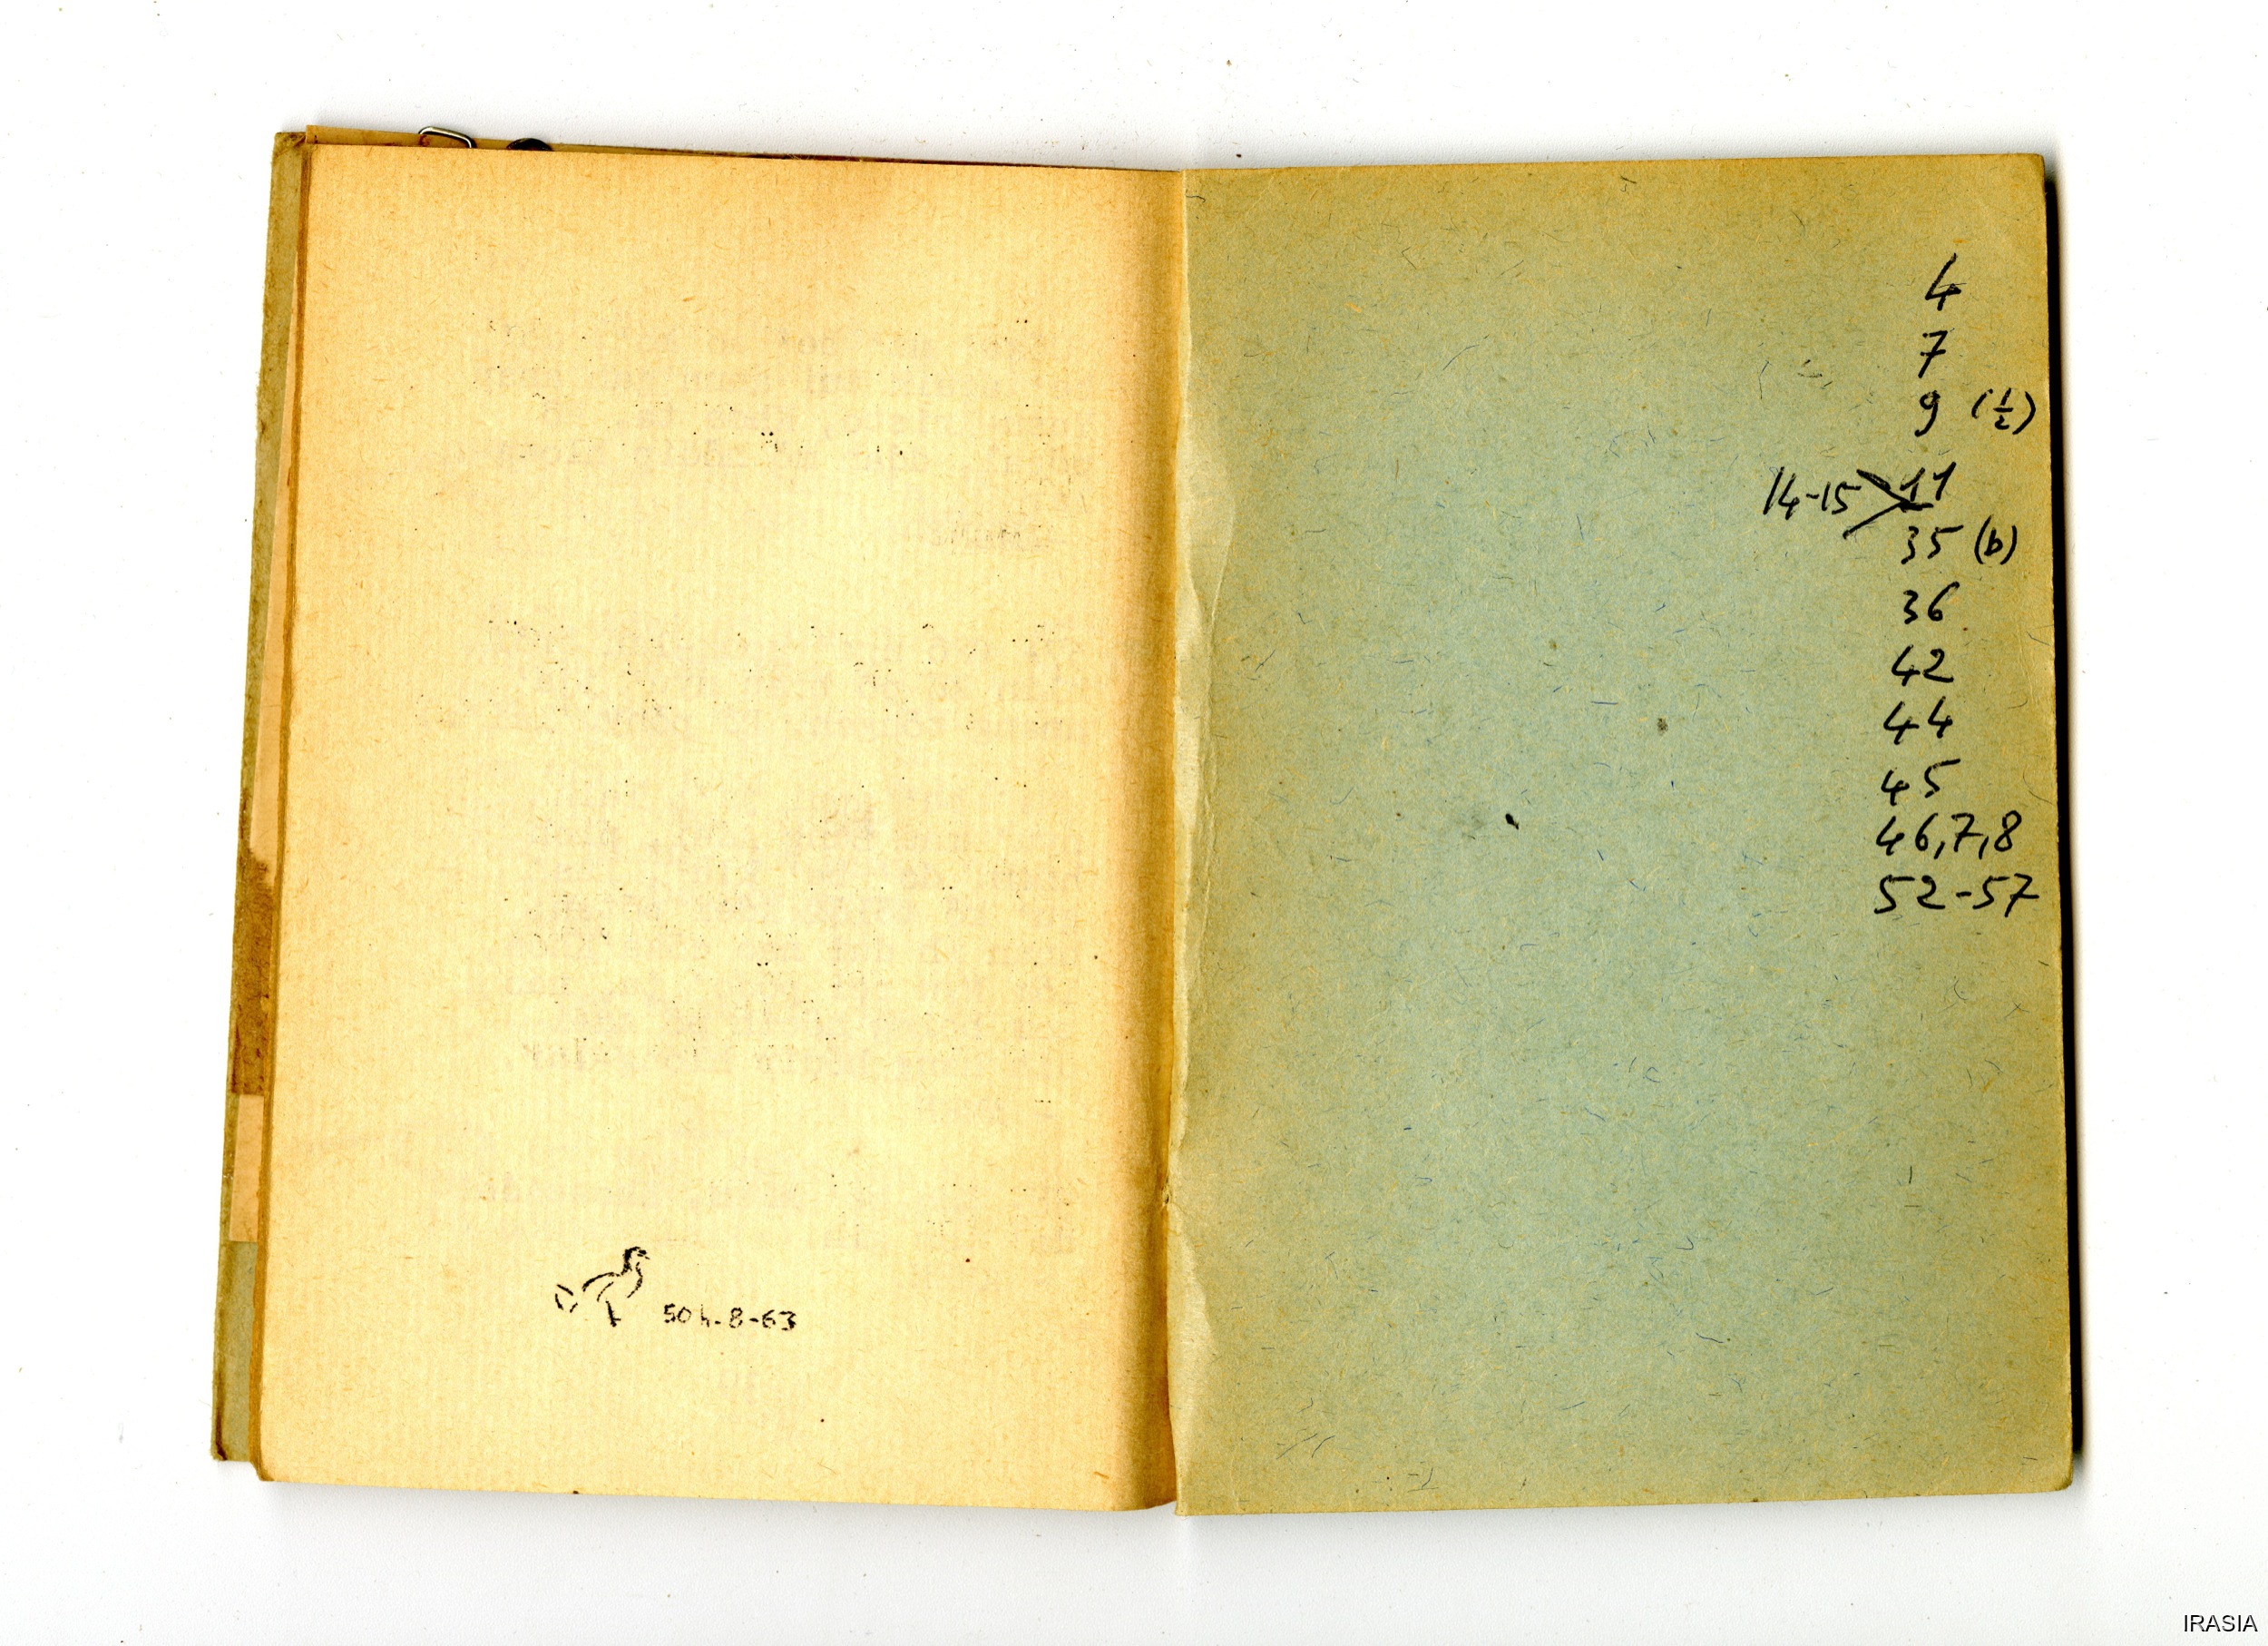 50 h.-8-63
4
7
9 (½)
11
14-15
35 (b)
36
42
44
45
46,7,8
52-57
IRASIA